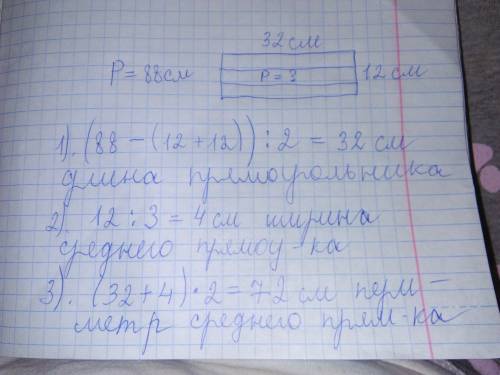 32 см
P = 88 см
P = 3
12 см
1). (88 - (12 + 12)) : 2 = 32 см
длина прямоугольника
2). 12 : 3 = 4 см ширина
среднего прямоу-ка
3). (32 + 4) · 2 = 72 см перм-
метр среднего прям-ка